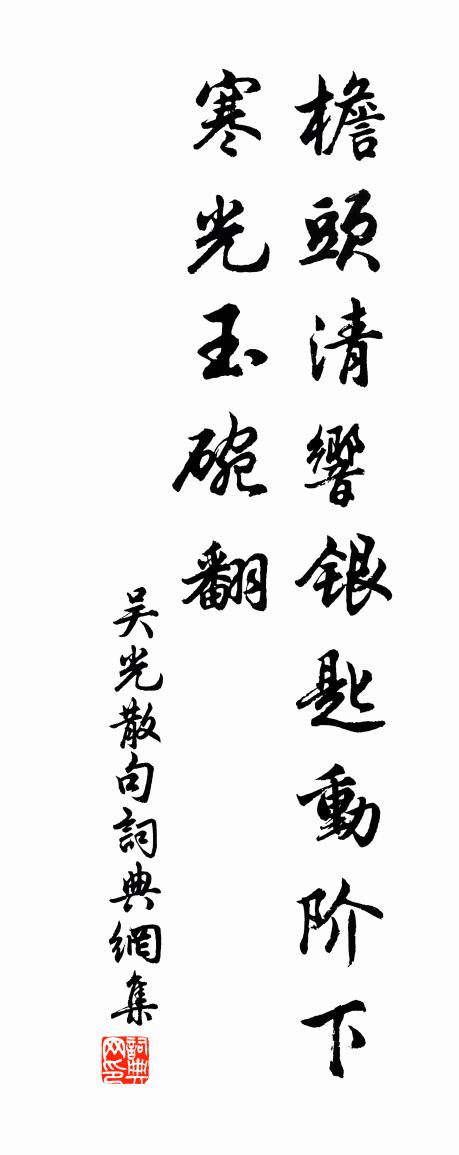 檐頭清響銀匙動阶下
寒光玉碗翻
吴光散句詞典網集
詞典
网印